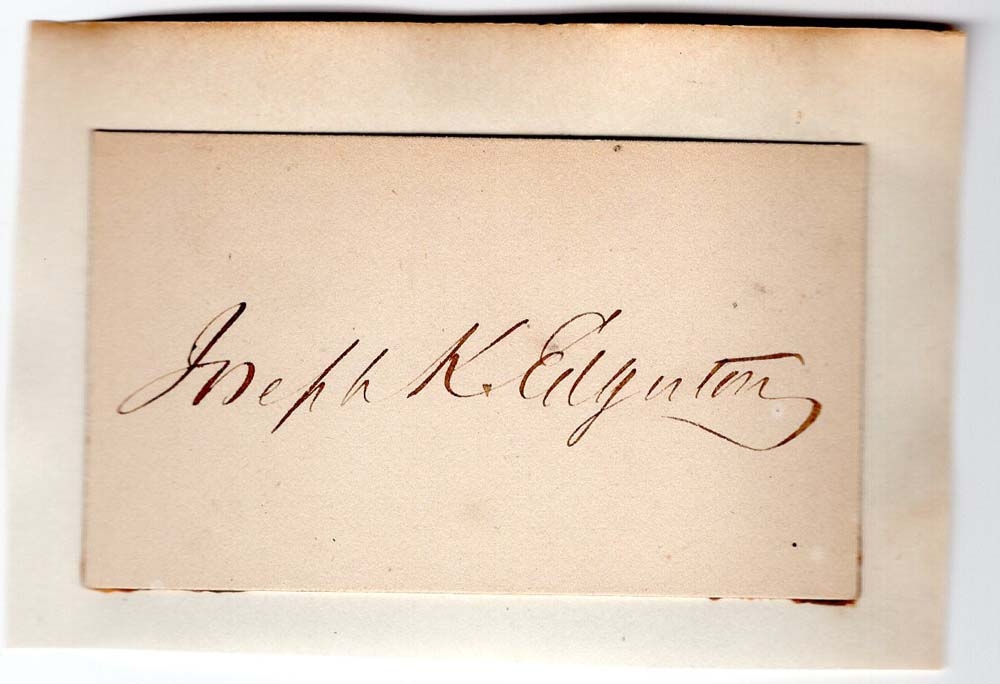 Joseph K. Edgerton